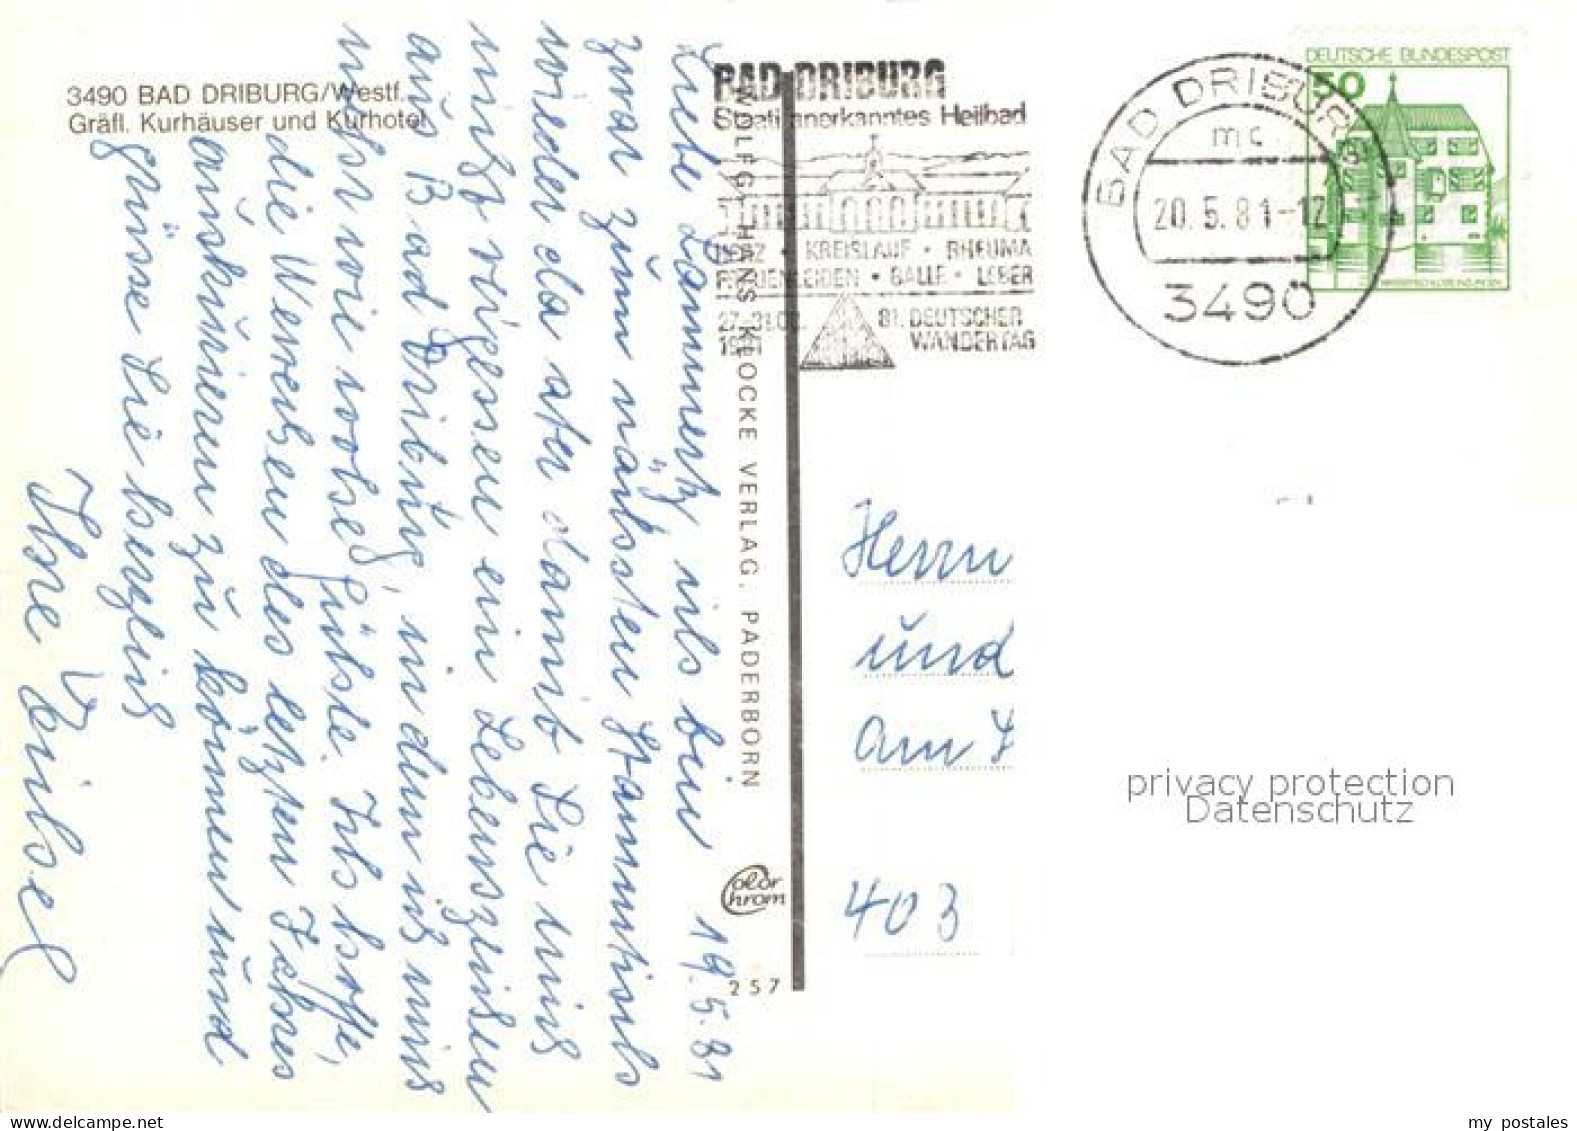 3490 BAD DRIBURG/Westf.
Gräfl. Kurhäuser und Kurhotel
19.5.81
Liebe Lammertz, ich bin
zwar zum nächsten Stammtisch
wieder da aber damit Sie mich
nicht vergessen ein Lebenszeichen
aus Bad Driburg, in dem ich mich
sehr wohl fühle. Ich hoffe,
die Wehwehen des letzten Jahres
auskurieren zu können und
grüsse Sie herzlich
Ihre
WOLFG. HANS KLOCKE VERLAG, PADERBORN
Color
Chrom
257
BAD DRIBURG
Staatl. anerkanntes Heilbad
HERZ • KREISLAUF • RHEUMA
FRAUENLEIDEN • GALLE • LEBER
1981
81. DEUTSCHER
WANDERTAG
BAD DRIBURG
mc
20.5.81-12
3490
DEUTSCHE BUNDESPOST
50
Herrn
und
Am
403
privacy protection
Datenschutz
www.delcampe.net
my postales